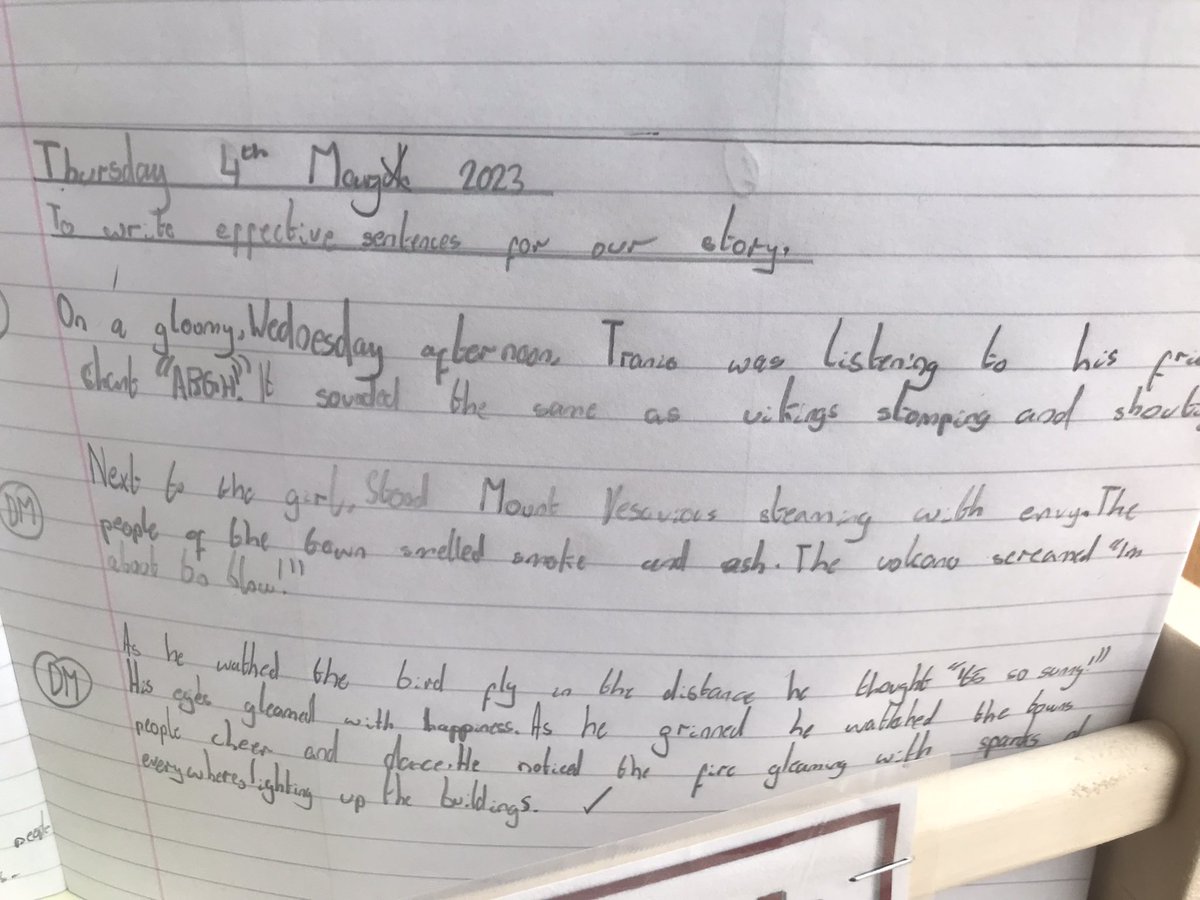 Thursday 4th May 2023
To write effective sentences for our story.
On a gloomy, Wednesday afternoon, Tranio was listening to his fri
chant "ABGH!" It sounded the same as vikings stomping and shout
Next to the girl, stood Mount Vesuvious steaming with envy. The
DM people of the town smelled smoke and ash. The volcano screamed "Im
about to blow!"
As he wathed the bird fly in the distance he thought "its so sunny!"
DM His eyes gleamed with happiness. As he grinned he watched the towns
people cheer and dance. He noticed the fire gleaming with sparks
everywhere, lighting up the buildings. ✓
people